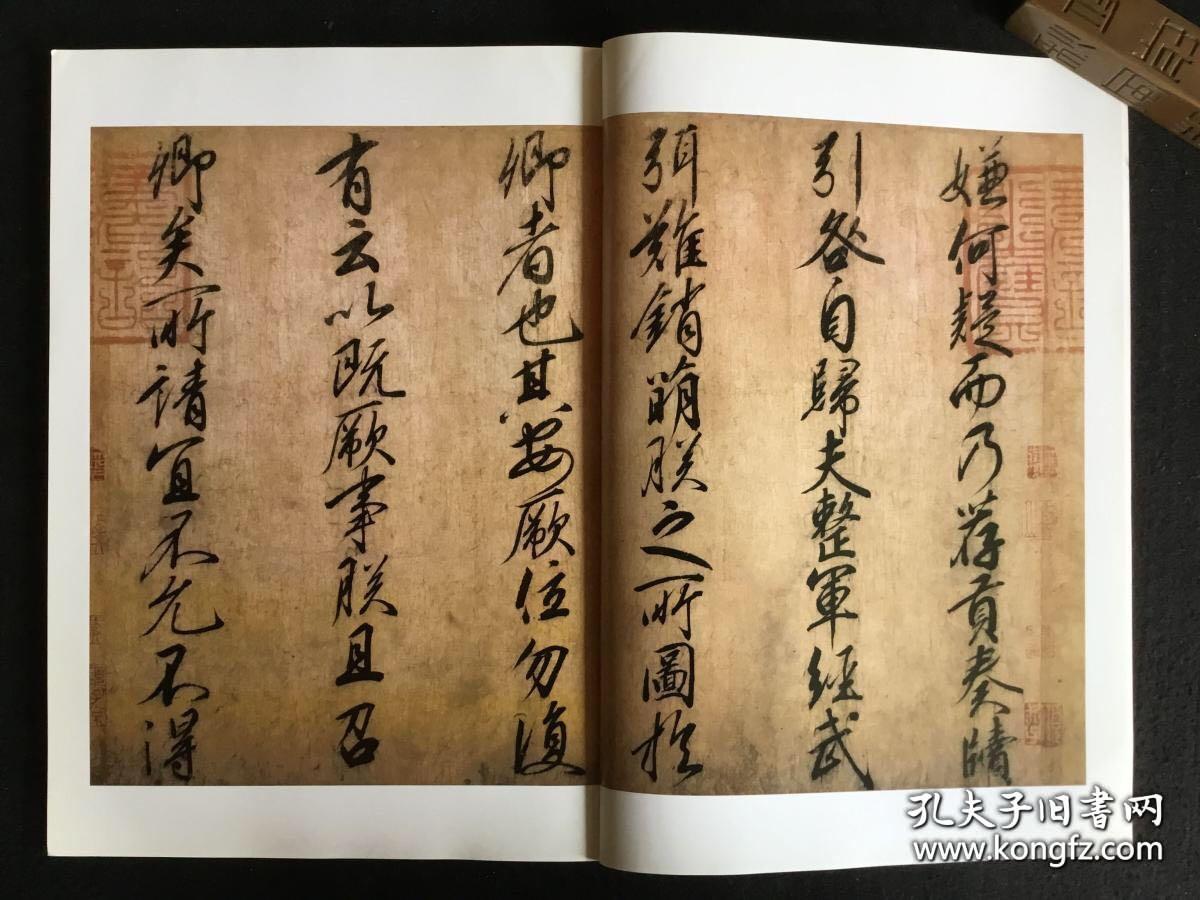 嫌何疑而乃荐貢奏牘
引咎自歸夫整軍經武
弭難銷萌朕之所圖於
卿者也其安厥位勿復
有云以既厥事朕且召
卿矣所請宜不允不得
孔夫子旧书网
www.kongfz.com